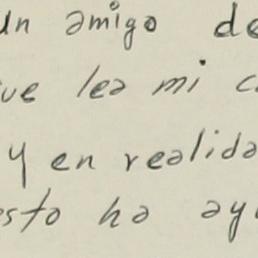 un amigo de
ue lea mi c
y en realida
sto ha ayu